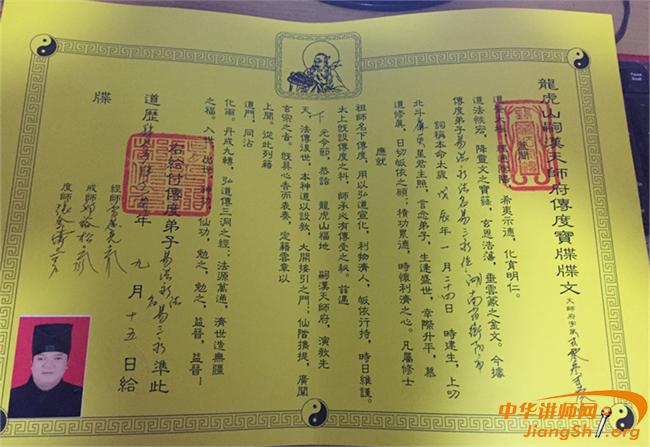 龍虎山嗣漢天師府傳度寶牒牒文
天師府字第
希夷示德，化育明仁。
道法核宏，降靈文之寶籙，玄恩浩蕩，垂雲篆之金文。今據
傳度弟子易湛永法名易三永係湖南省衡陽
詞稱本命太歲戊辰年一月二十四日 時建生，上叩
北斗 星君主照，言念弟子，生逢盛世，幸際升平，慕
道修真，日切皈依之願；積功累德，時懷利濟之心。凡屬修士
應就
祖師名下傳度，用以弘道宣化，利物濟人，皈依行持，時日維護。
太上既設傳度之科，師承必有傳受之秘。茲遇
下元令節，恭詣 龍虎山福地 嗣漢天師府，演教先
天，法傳後世，本神道以設教，大開接引之門，仙階攜提，廣闡
玄宗之旨。既具心香而表奏，定籍雲章以
上聞。從此列籍
道門，同沾
化雨。丹成九轉，弘道傳三洞之經；法源萬通，濟世造無疆
之福。入世，出世，神功，仙功，勉之，勉之，益晉，益晉！
右給付傳度弟子易湛永法名易三永準此
道歷 年九月十五日給
牒
經師
戒師
度師
中华讲师网
JiangShi.org